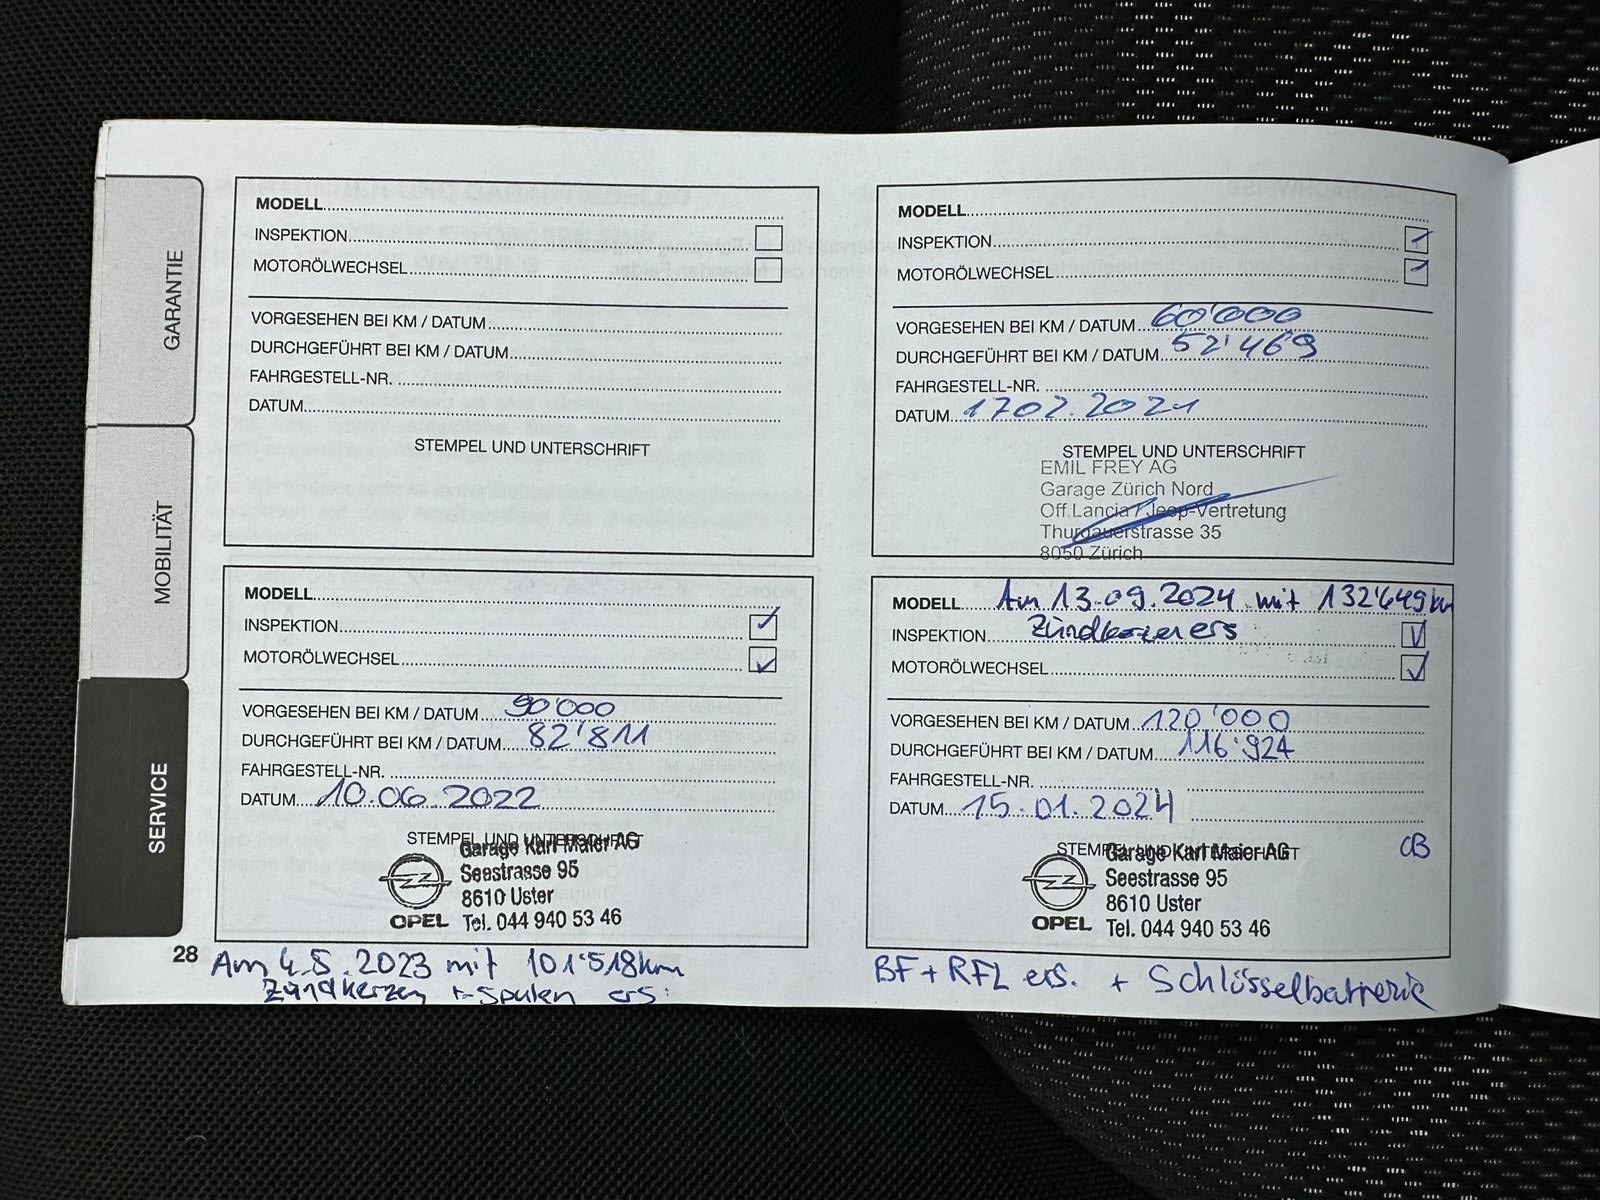 GARANTIE
MOBILITÄT
SERVICE
MODELL
INSPEKTION
MOTORÖLWECHSEL
VORGESEHEN BEI KM / DATUM
DURCHGEFÜHRT BEI KM / DATUM
FAHRGESTELL-NR.
DATUM
STEMPEL UND UNTERSCHRIFT
MODELL
INSPEKTION
MOTORÖLWECHSEL
VORGESEHEN BEI KM / DATUM 60'000
DURCHGEFÜHRT BEI KM / DATUM 52'469
FAHRGESTELL-NR.
DATUM 17 02.2021
STEMPEL UND UNTERSCHRIFT
EMIL FREY AG
Garage Zürich Nord
Off.Lancia / Jeep-Vertretung
Thurgauerstrasse 35
8050 Zürich
MODELL
INSPEKTION
MOTORÖLWECHSEL
VORGESEHEN BEI KM / DATUM 90'000
DURCHGEFÜHRT BEI KM / DATUM 82'811
FAHRGESTELL-NR.
DATUM 10.06 2022
STEMPEL UND UNTERSCHRIFT
Garage Karl Maier AG
Seestrasse 95
8610 Uster
OPEL Tel. 044 940 53 46
28 Am 4.5.2023 mit 101'518km
Zündkerzen + Spulen ers.
MODELL Am 13.09.2024 mit 132'649km
INSPEKTION Zündkerzen ers
MOTORÖLWECHSEL
VORGESEHEN BEI KM / DATUM 120'000
DURCHGEFÜHRT BEI KM / DATUM 116'924
FAHRGESTELL-NR.
DATUM 15.01.2024
STEMPEL UND UNTERSCHRIFT
Garage Karl Maier AG
Seestrasse 95
8610 Uster
OPEL Tel. 044 940 53 46
BF + RFL ers. + Schlüsselbatterie